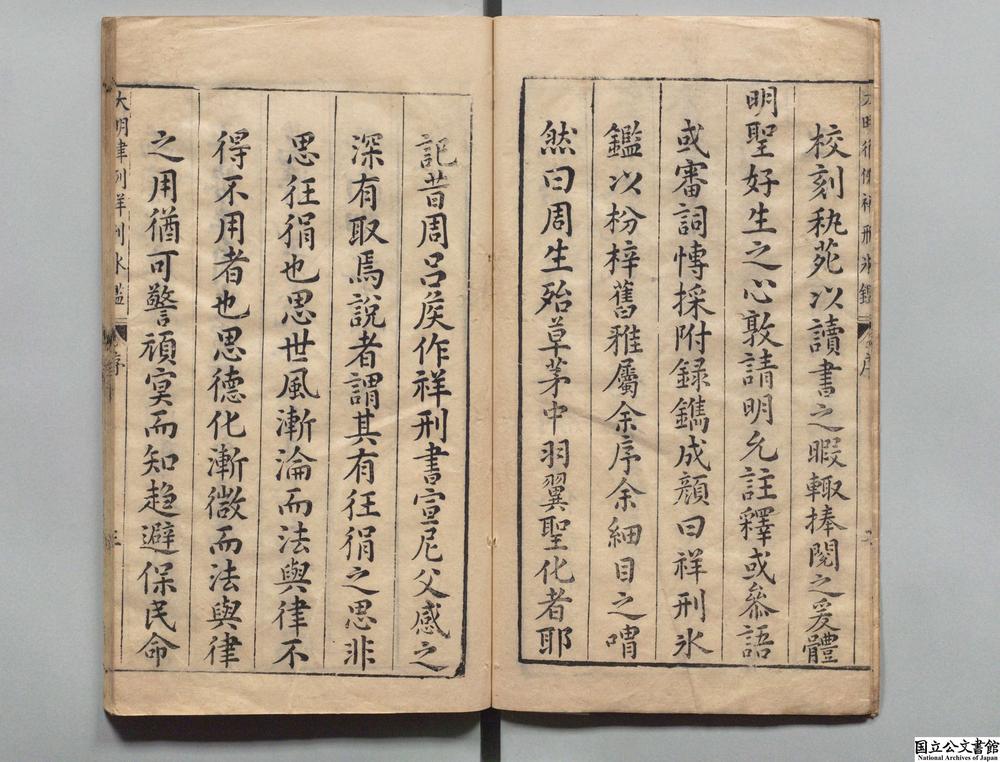 校刻秇苑以讀書之暇輙捧閱之爰體
明聖好生之心敦請明允註釋或叅語
或審詞慱採附録鐫成顔曰祥刑氷
鑑以枌梓舊雅屬余序余細目之喟
然曰周生殆草茅中羽翼聖化者耶
記昔周呂矦作祥刑書宣尼父感之
深有取焉說者謂其有狂狷之思非
思狂狷也思世風漸淪而法與律不
得不用者也思德化漸微而法與律
之用猶可警頑冥而知趋避保民命
大明律例祥刑氷鑑
序
国立公文書館
National Archives of Japan